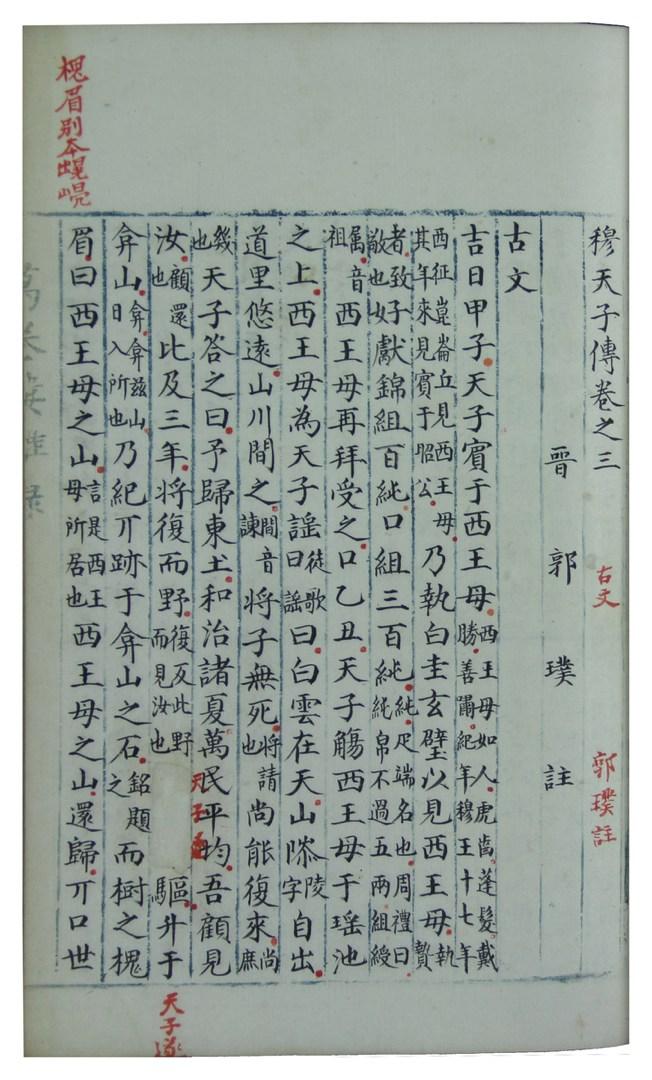 穆天子傳卷之三 古文 郭璞註
晉郭璞註
古文
吉日甲子天子賓于西王母西王母如人虎齒蓬髮戴勝善嘯紀年穆王十七年
西征崑崙丘見西王母其年來見賓于昭公乃執白圭玄璧以見西王母執贄
者致敬也好獻錦組百純口組三百純純疋端名也周禮曰純帛不過五兩組綬
屬音祖西王母再拜受之口乙丑天子觴西王母于瑶池
之上西王母為天子謡徒歌曰謡曰白雲在天山𨻰陵字自出
道里悠遠山川間之間音諫將子無死將請也尚能復來尚庶
幾也天子答之曰予歸東土和治諸夏萬民平均吾顧見
汝顧還也比及三年將復而野復反此野而見汝也 天子遂 驅升于
弇山弇弇兹山日入所也乃紀丌跡于弇山之石銘題之而樹之槐
眉曰西王母之山言是西王母所居也西王母之山還歸丌口世
槐眉別本出
天子遂